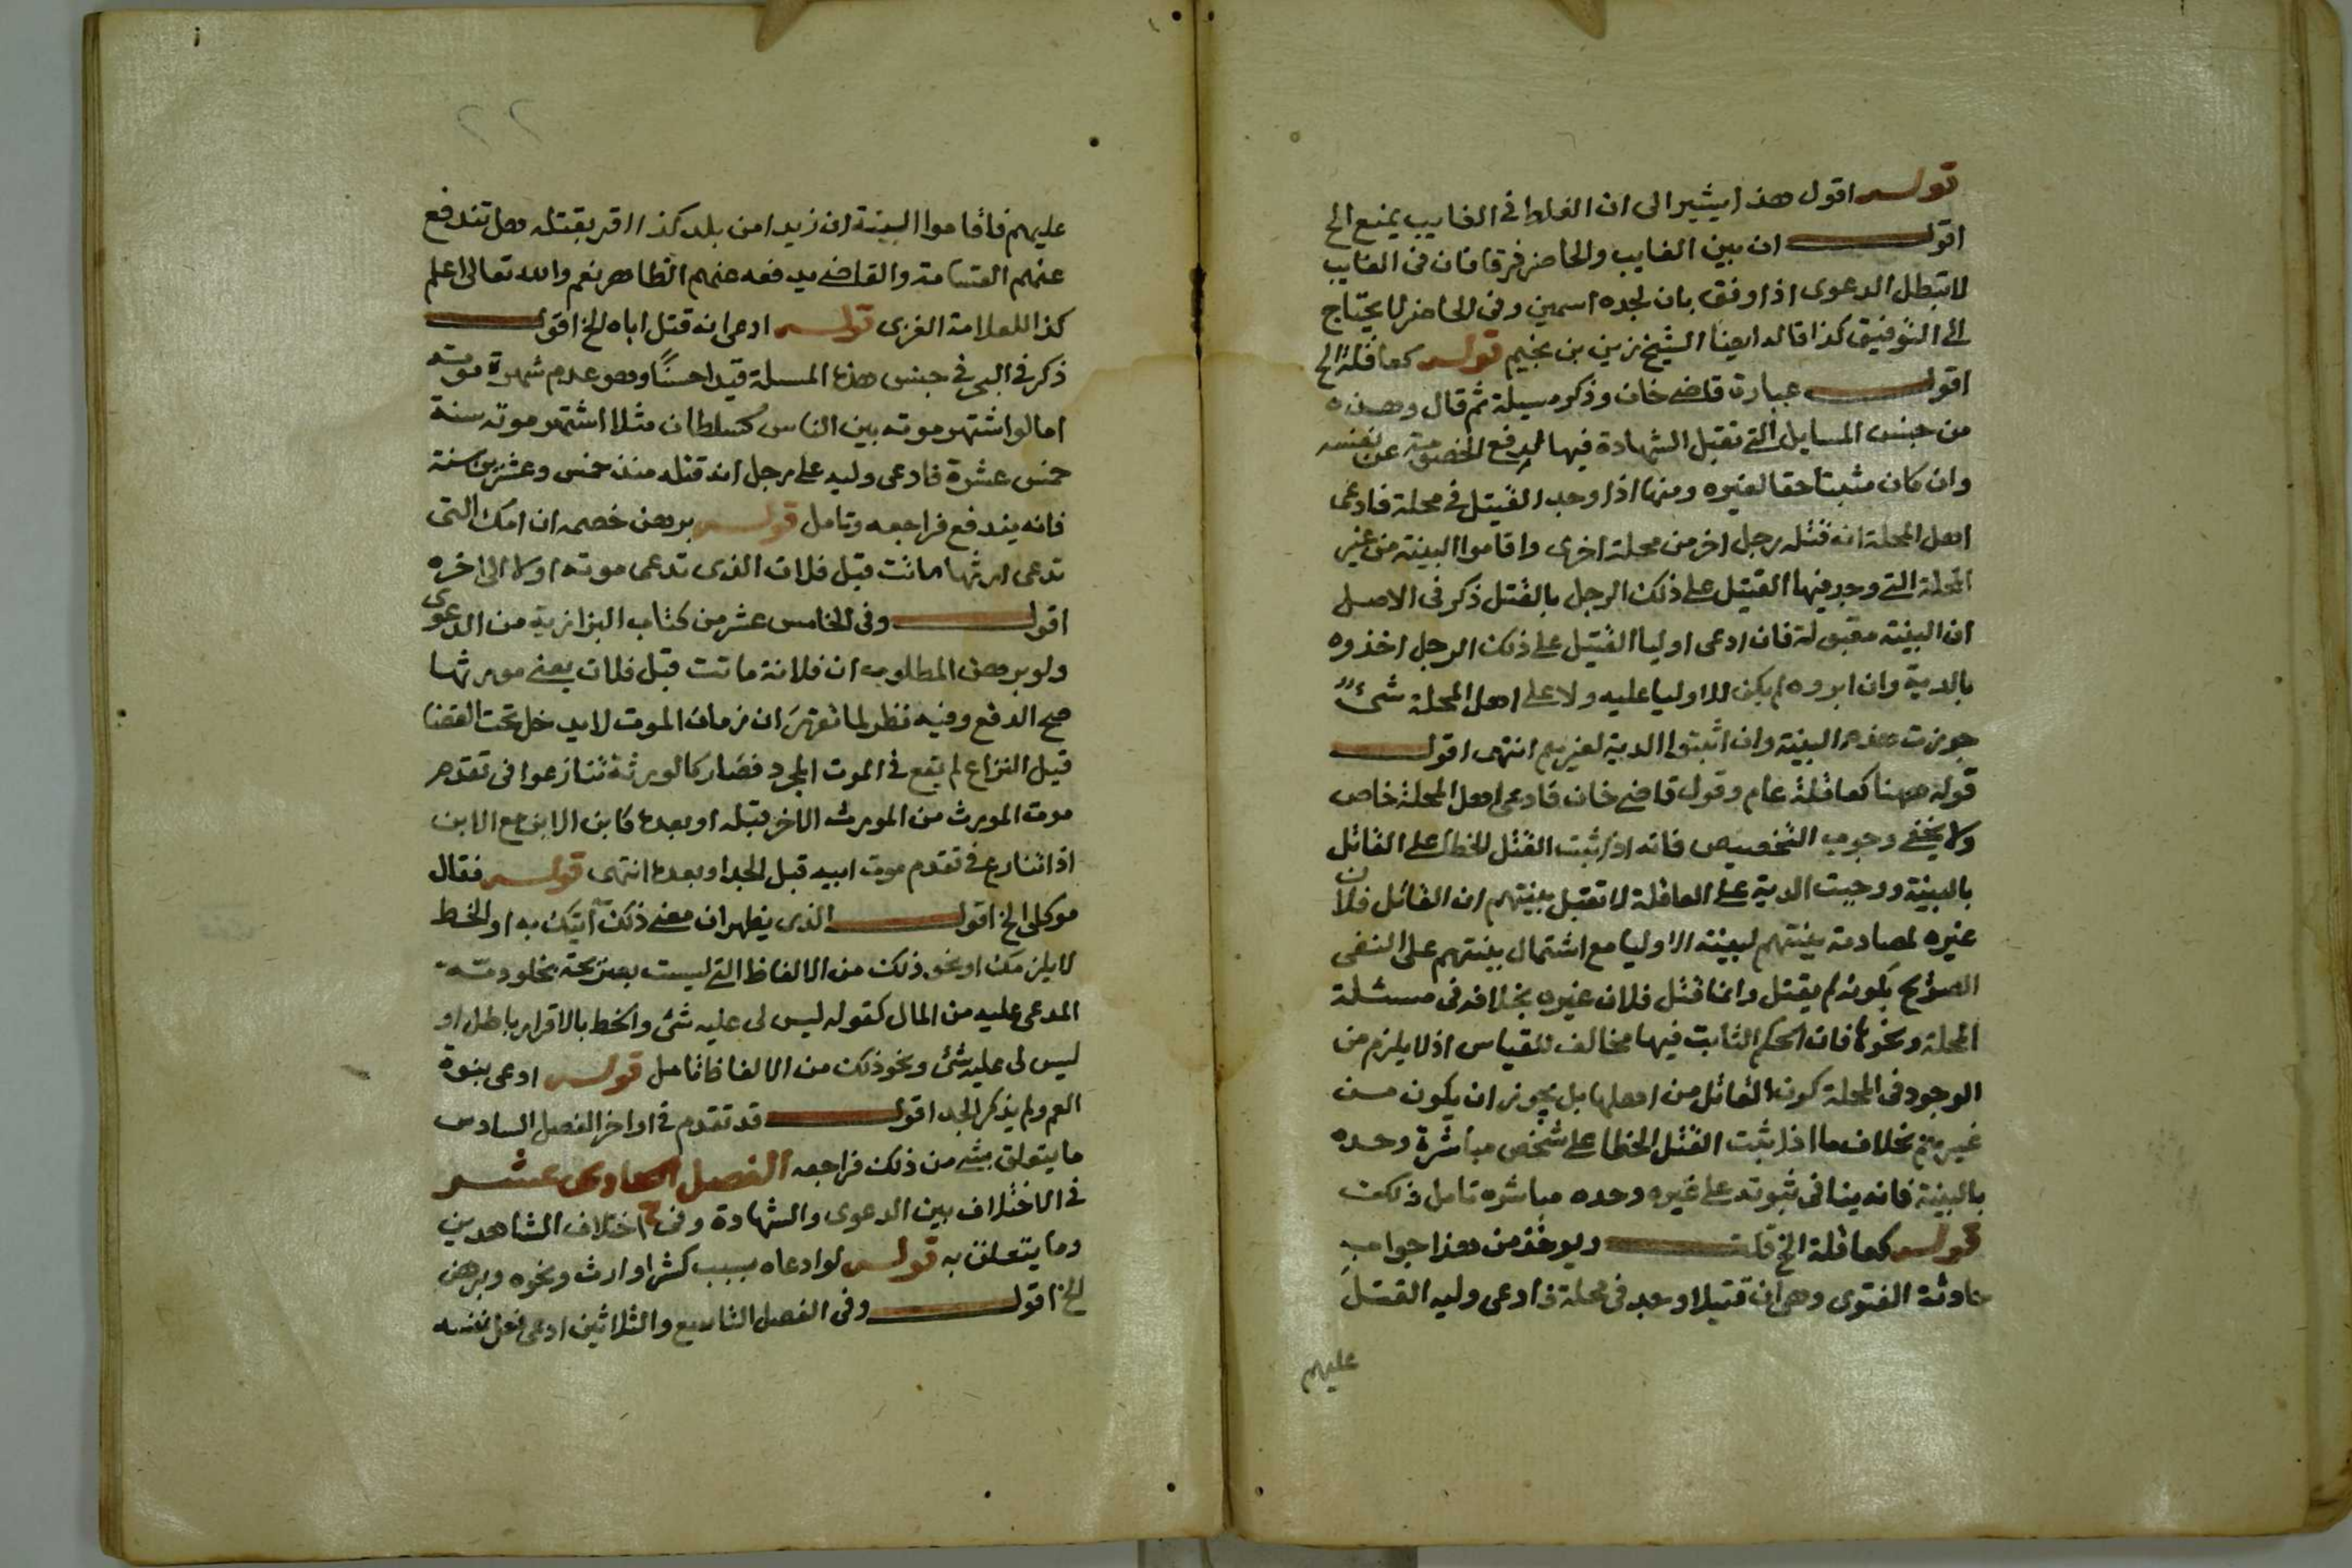 قولـــه اقول هذا يشير الى ان الغلط في الغايب يمنع الخ
اقولـــــ ان بين الغايب والحاضر فرقا فان في الغايب
لا تبطل الدعوى اذا وفق بان لجده اسمين وفى الحاضر لا يحتاج
الى التوفيق كذا قاله ايضا الشيخ زين بن نجيم قولـــه كعاقلة الخ
اقولـــــ عبارة قاضي خان وذكر مسيلة ثم قال وهذه
من جنس المسايل التي تقبل الشهادة فيها لدفع الخصومة عن نفسه
وان كان مثبتا حقا لغيره ومنها اذا وجد القتيل في محلة فادعى
اهل المحلة انه قتله رجل اخر من محلة اخرى واقاموا البينة من غير
المحلة التي وجد فيها القتيل على ذلك الرجل بالقتل ذكر في الاصل
ان البينة مقبولة فان ادعى اوليا القتيل على ذلك الرجل اخذوه
بالدية وان ابروه لم يكن للاوليا عليه ولا على اهل المحلة شئ
جوزت هذه البينة وان اثبتوا الدية لغيرهم انتهى اقولـــــ
قوله ههنا كعاقلة عام وقول قاضي خان فادعى اهل المحلة خاص
ولا يخفى وجوب التخصيص فانه اذا ثبت القتل الخطا على القاتل
بالبينة ووجبت الدية على العاقلة لا تقبل بينتهم ان القاتل فلان
غيره لمصادمة بينتهم لبينة الاوليا مع اشتمال بينتهم على النفى
الصريح بكونه لم يقتل وانما قتل فلان غيره بخلافه فى مسئلة
المحلة ونحوها فان الحكم الثابت فيها مخالف للقياس اذ لا يلزم من
الوجود فى المحلة كون القاتل من اهلها بل يجوز ان يكون من
غيرهم بخلاف ما اذا ثبت القتل الخطا على شخص مباشرة وحده
بالبينة فانه ينافى ثبوته على غيره وحده مباشره تامل ذلك
قولـــه كعاقلة الخ قلتـــــ ويوخذ من هذا جواب
حادثة الفتوى وهي ان قتيلا وجد في محلة فادعى وليه القتل
عليهم
٢٢
عليهم فاقاموا البينة ان زيدا من بلد كذا اقر بقتله هل تندفع
عنهم القسامة والقاضي يدفعه عنهم الظاهر نعم والله تعالى اعلم
كذا للعلامة الغزى قولـــه ادعى انه قتل اباه الخ اقولـــــ
ذكر في البحر في جنس هذه المسلة قيدا حسنًا وهو عدم شهرة موته
اما لو اشتهر موته بين الناس كسلطان مثلا اشتهر موته سنة
خمس عشرة فادعى وليه على رجل انه قتله منذ خمس وعشرين سنة
فانه يندفع فراجعه وتامل قولـــه برهن خصمه ان امك التى
تدعى ارثها ماتت قبل فلان الذى تدعى موته اولا الى اخره
اقولـــــ وفى الخامس عشر من كتاب البزازية من الدعوى
ولو برهن المطلوب ان فلانة ماتت قبل فلان يعني مورثها
صح الدفع وفيه نظر لما تقرر ان زمان الموت لا يدخل تحت القضا
قيل النزاع لم يقع في الموت المجرد فصار كالورثة تنازعوا فى تقدم
موت المورث من المورث الاخر قبله او بعده كابن الابن مع الابن
اذا تنازع في تقدم موت ابيه قبل الجد او بعده انتهى قولـــه فقال
موكلى الخ اقولـــــ الذى يظهر ان معنى ذلك اتيك به او الخط
لا يلزمك او نحو ذلك من الالفاظ التي ليست بصريحة بخلو ذمته
المدعى عليه من المال كقوله ليس لى عليه شئ والخط بالاقرار باطل او
ليس لى عليه شئ ونحو ذلك من الالفاظ تامل قولـــه ادعى بنوة
العم ولم يذكر الجد اقولـــــ قد تقدم في اواخر الفصل السادس
ما يتعلق بشي من ذلك فراجعه الفصل الحادى عشـــر
في الاختلاف بين الدعوى والشهادة وفى اختلاف الشاهدين
وما يتعلق به قولـــه لو ادعاه بسبب كشرا وارث ونحوه وبرهن
الخ اقولـــــ وفى الفصل التاسع والثلاثين ادعى فعل نفسه